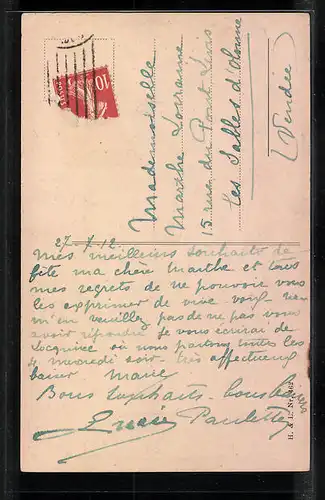 Mademoiselle
Marthe Lorranne
15 rue du Pont Levis
Les Sables d'Olonne
(Vendée)
10
27.7.12
Mes meilleurs souhaits de
fête ma chère Marthe et tous
mes regrets de ne pouvoir vous
les exprimer de vive voix. Ne
m'en veuillez pas de ne pas vous
avoir répondu je vous écrirai de
où nous partons toutes les
4 mercredi soir. Très affectueux
baiser Marie
Bons souhaits
Paulette
H. & L. Nr.